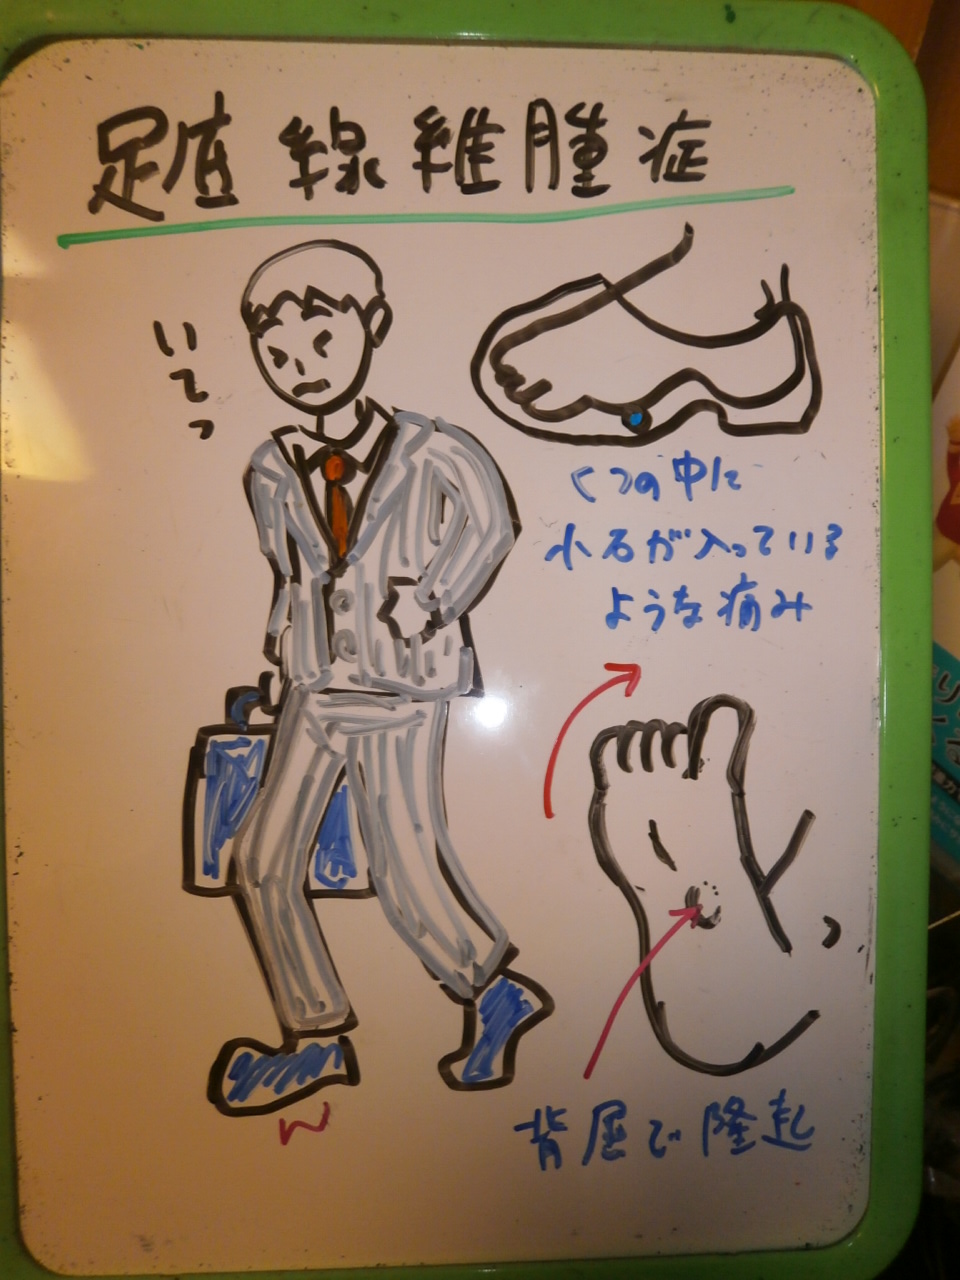 足底線維腫症
いてっ
くつの中に
小石が入っている
ような痛み
背屈で隆起